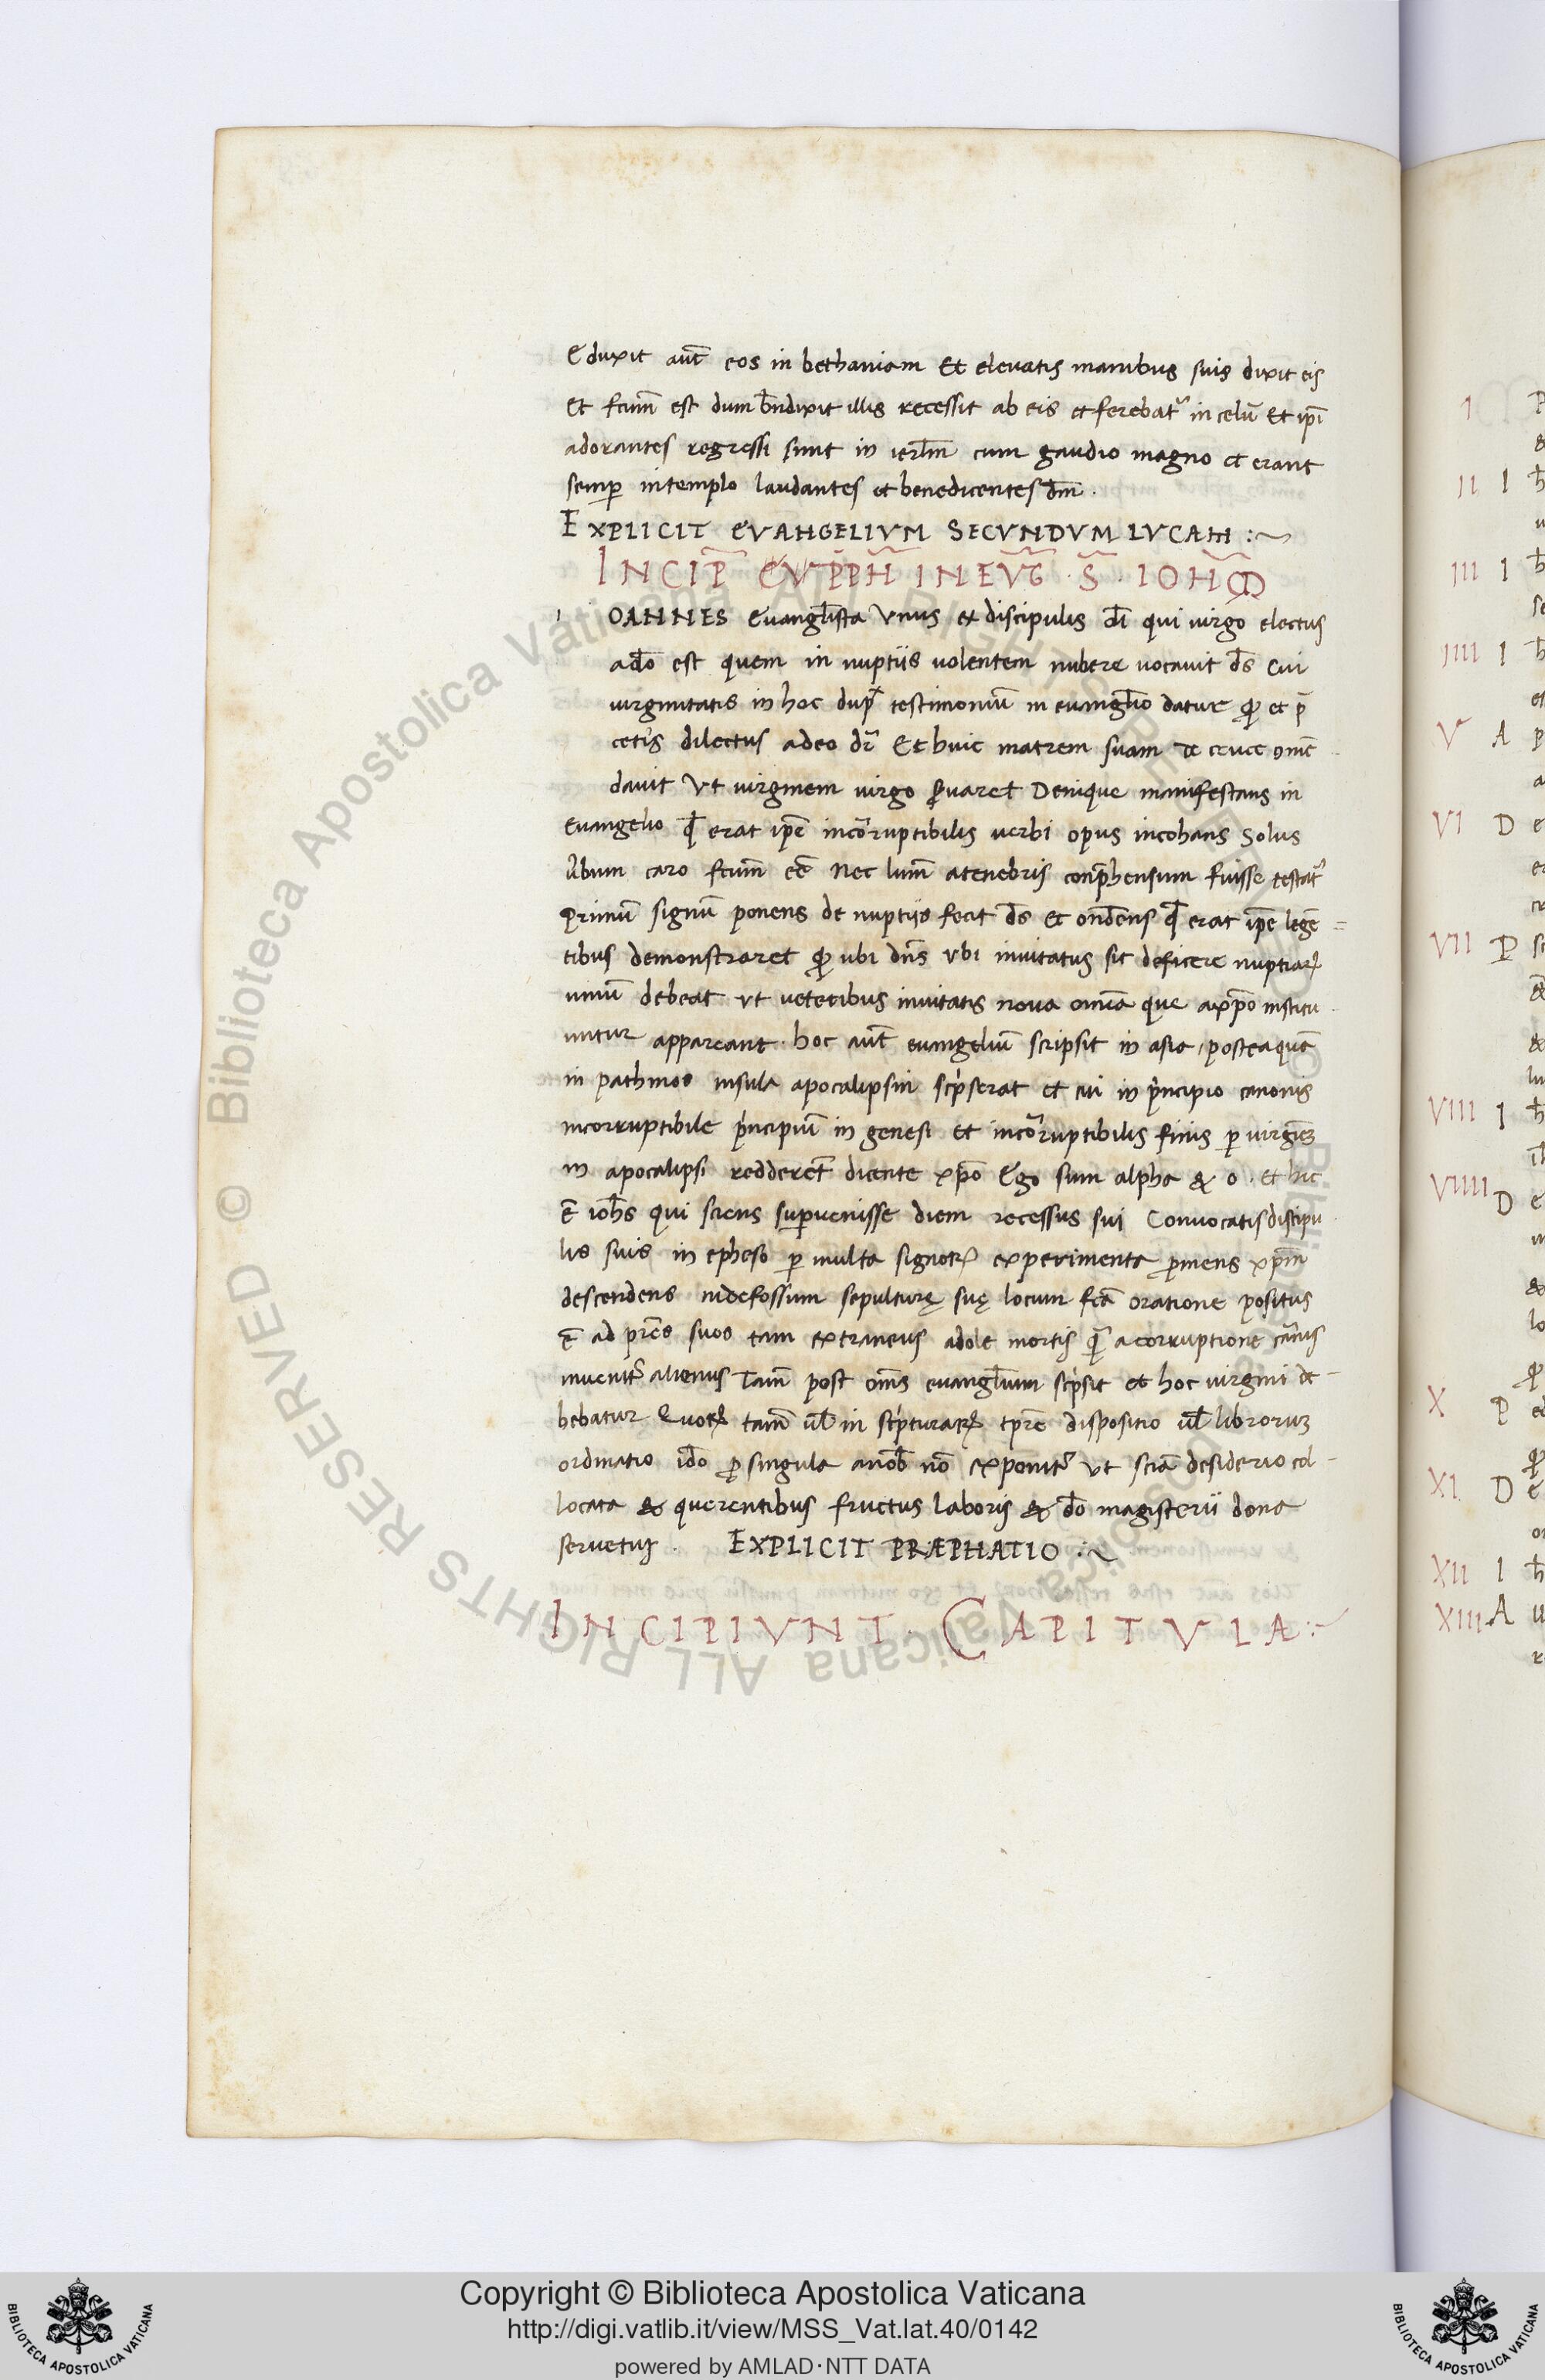 Eduxit aut̄ eos in bethaniam Et elevatis manibus suis dixit eis
et fcūm est dum bn̄dixit illis recessit ab eis et ferebat᷑ in celū Et ip̄i
adorantes regressi sunt in ierl̄m cum gaudio magno et erant
semꝑ in templo laudantes et benedicentes dm̄.
EXPLICIT EVANGELIVM SECVNDVM LVCAM :~
INCIP̄
IOANNES Evangl̄ista Vnus ex discipulis dī qui virgo electus
a dō est quem in nuptiis volentem nubere vocavit ds̄ Cui
virginitatis in hoc testimoniū in evangl̄io datur et p̄
ceteris dilectus a deo dr̄ Et huic matrem suam de cruce ꝯmē
davit Vt virginem virgo servaret Denique manifestans in
Evangelio qd̄ erat ip̄e incorruptibilis verbi opus incohans Solus
v̄bum caro fcūm eē Nec lum̄ a tenebris conp̄hensum fuisse testat᷑
Primū signū ponens de nuptiis fecit ds̄ et ondens qd̄ erat ip̄e legē=
tibus demonstraret ubi dn̄s vbi invitatus sit deficere nuptiaꝝ
vinū debeat vt veteribus invitatis nova om̄ia que a xp̄o institu
untur appareant. hoc aut̄ evangeliū scripsit in asia, postea quā
in pathmos insula apocalipsin scp̍serat et cui in p̍ncipio canonis
incorruptibile p̍ncipiū in genesi et incorruptibilis finis ꝑ virginē
in apocalipsi redderet̄ dicente xp̄o Ego sum alpha & o. et hic
ē ioh̄s qui sciens suꝑvenisse diem recessus sui Convocatis discipu
lis suis in epheso ꝑ multa signoꝝ experimenta ꝓmens xp̄m
descendens in defossum sepulturę suę locum fcā oratione positus
ē ad pr̄es suos tam extraneus a dole mortis qᷓ a corruptione carnis
invenit᷑ alienus Tam̄ post om̄s evangl̄ium scp̍sit et hoc virgini de-
bebatur Quoꝝ tam̄ vl̄ in scp̍turaꝝ tp̄re dispositio vl̄ librorum
ordinatio id̄o ꝑ singula a nob̄ nō exponit᷑ vt sciā desiderio col-
locata & querentibus fructus laboris & dō magisterii dona
servetur. EXPLICIT PRÆPHATIO :~
INCIPIVNT. CAPITVLA :~
I
II I
III I
IIII I
V A
VI D
VII P
VIII I
VIIII D
X P
XI D
XII I
XIII A
© Biblioteca Apostolica Vaticana ALL RIGHTS RESERVED
Copyright © Biblioteca Apostolica Vaticana
http://digi.vatlib.it/view/MSS_Vat.lat.40/0142
powered by AMLAD·NTT DATA
BIBLIOTECA APOSTOLICA VATICANA
BIBLIOTECA APOSTOLICA VATICANA